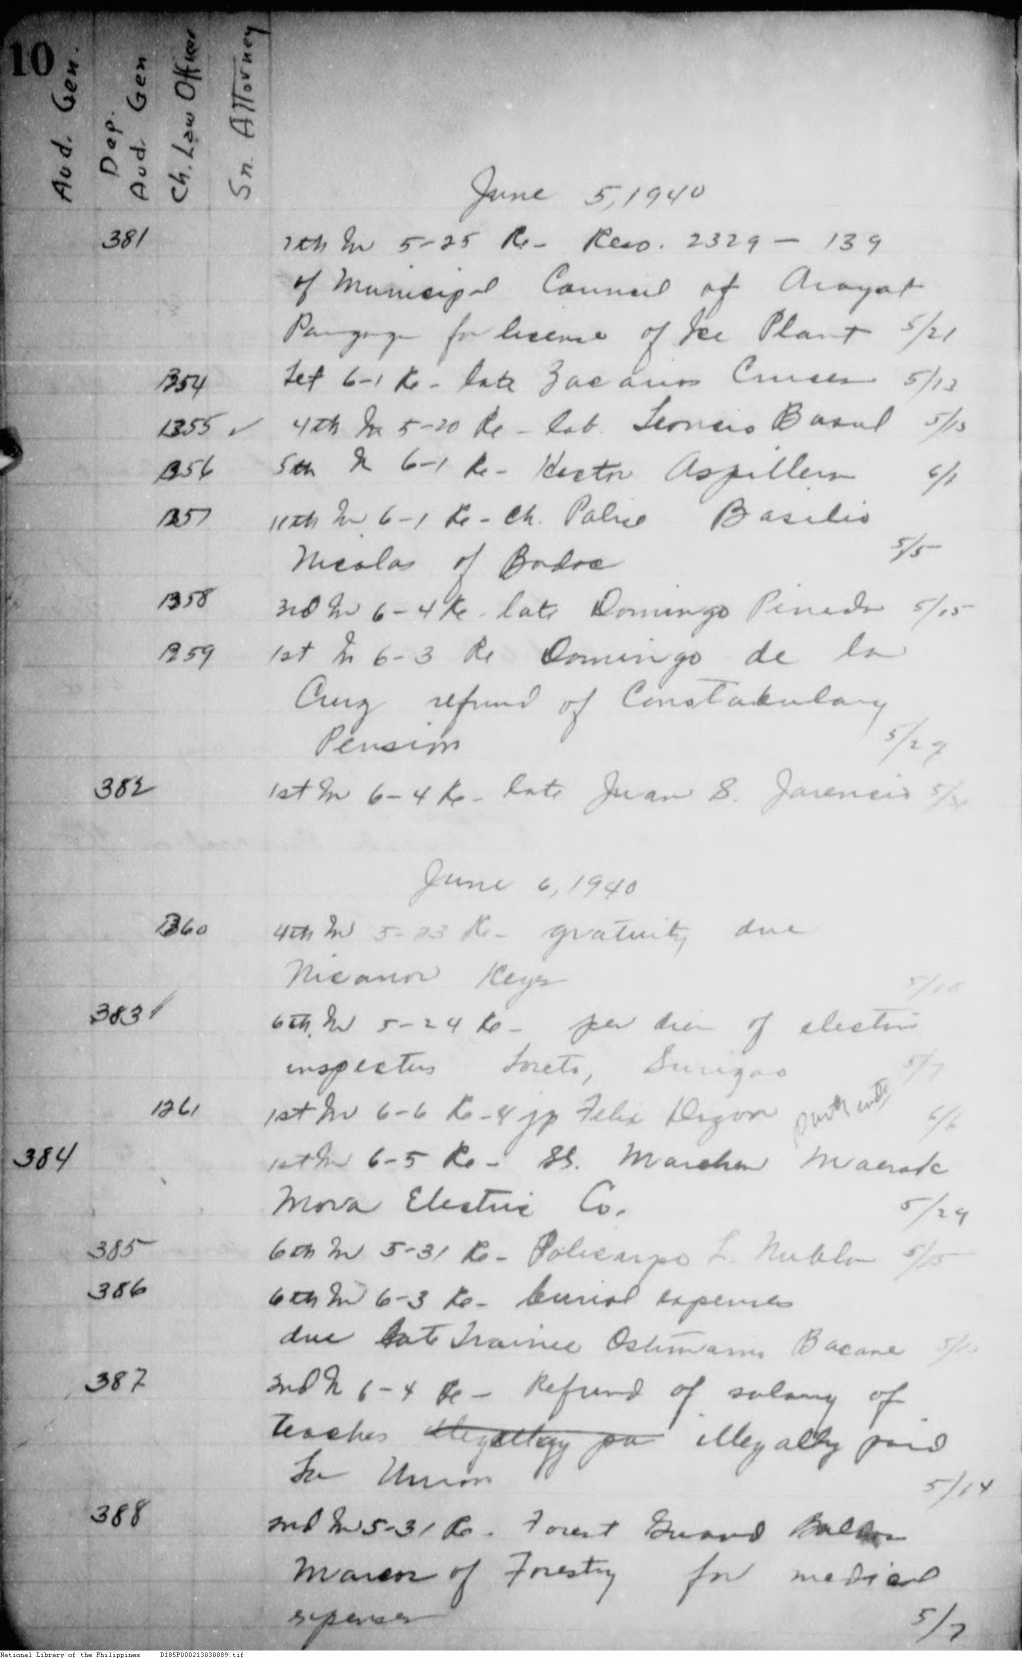 10
Aud. Gen.
Dep. Aud. Gen
Ch. Law Officer
Sn. Attorney
June 5, 1940
381 7th In 5-25 Re- Reso. 2329 — 139
of Municipal Council of Arayat
Pampanga for license of Ice Plant 5/21
1354 Let 6-1 Re- late Zacarias Cruses 5/13
1355 ✓ 4th In 5-20 Re- lat. Leoncio Basul 5/13
1356 5th In 6-1 Re- Hector Aspillera 6/1
1357 11th In 6-1 Re- Ch. Police Basilio
Nicolas of Badoc 5/5
1358 3rd In 6-4 Re- late Domingo Pineda 5/15
1359 1st In 6-3 Re Domingo de la
Cruz refund of Constabulary
Pension 5/29
382 1st In 6-4 Re- late Juan S. Jarencio
June 6, 1940
1360 4th In 5-23 Re- gratuity due
Nicanor Reyes 5/18
383 6th In 5-24 Re- per diem of election
inspectors Loreto, Surigao 5/7
1261 1st In 6-6 Re- jp Felix Dizon 6/6
384 1st In 6-5 Re- Marchen
Mora Electric Co. 5/29
385 6th In 5-31 Re- Policarpo L. Nubla 5/15
386 6th In 6-3 Re- burial expenses
due late Trainee Bacane
387 2nd In 6-4 Re- Refund of salary of
teaches illegally pa illegally paid
La Union 5/14
388 2nd In 5-31 Re- Forest Guard
of Forestry for medical
expenses 5/7
National Library of the Philippines D185P000213030089.tif